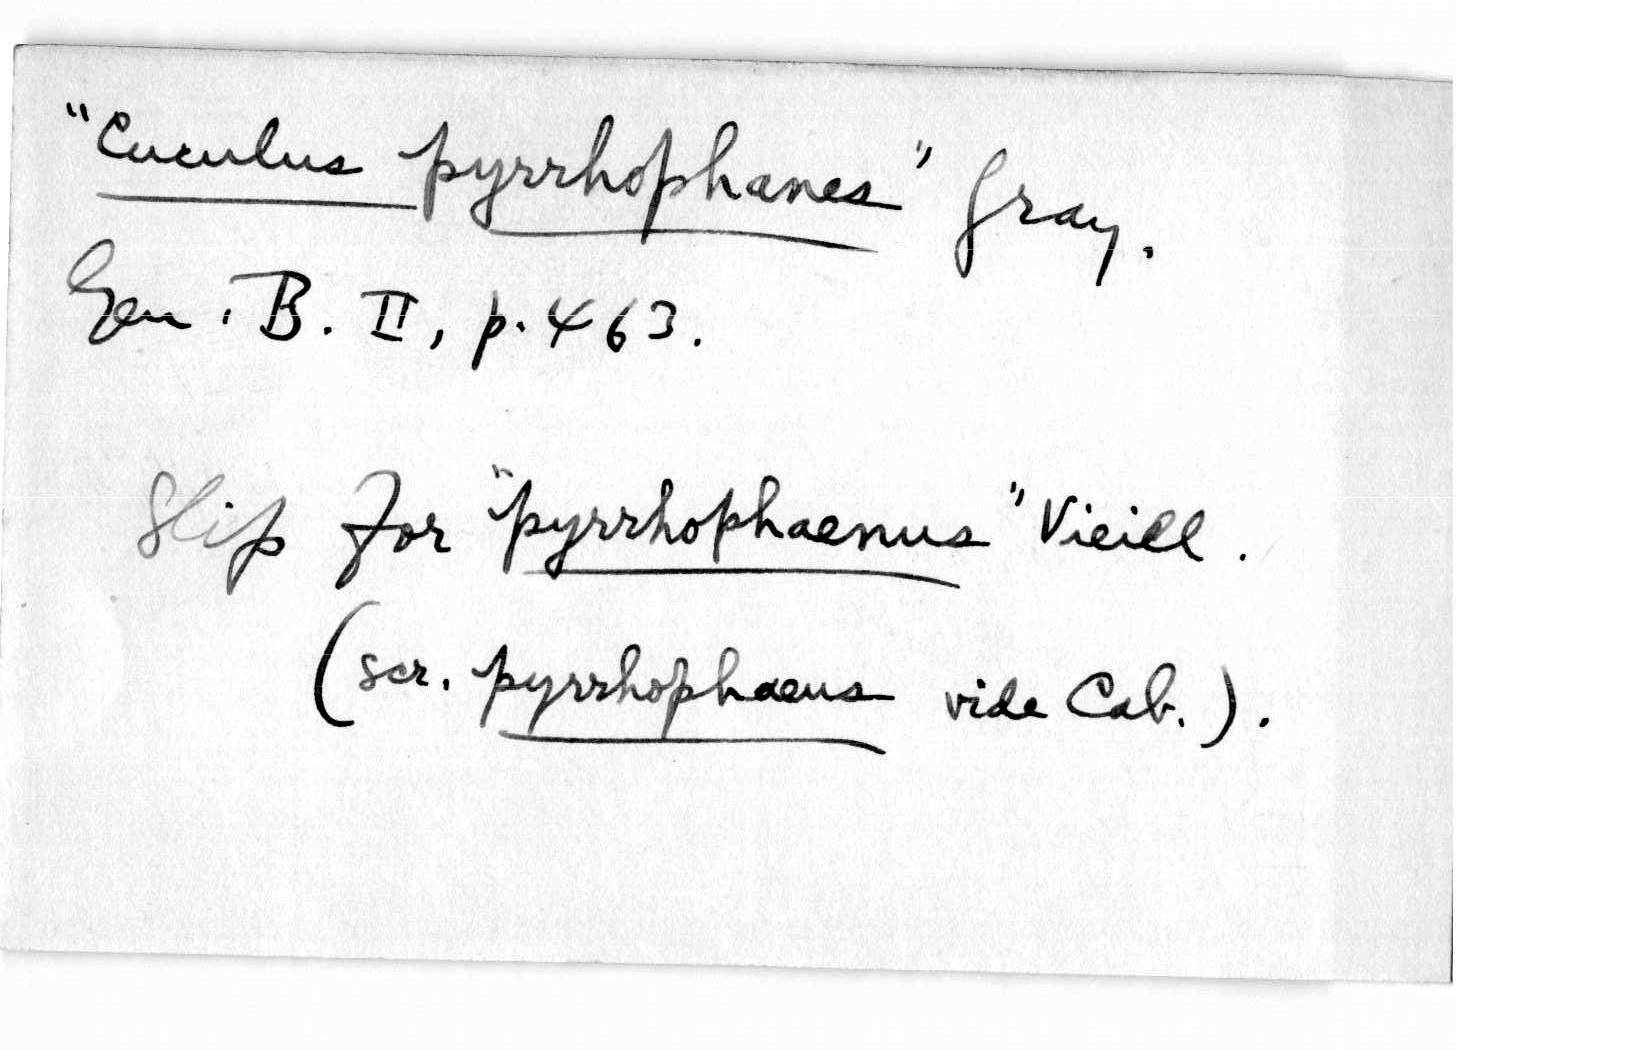 "Cuculus pyrrhophanes" Gray.
Gen. B. II, p. 463.
Slip for "pyrrhophaenus" Vieill.
(scr. pyrrhophaeus vide Cab.).